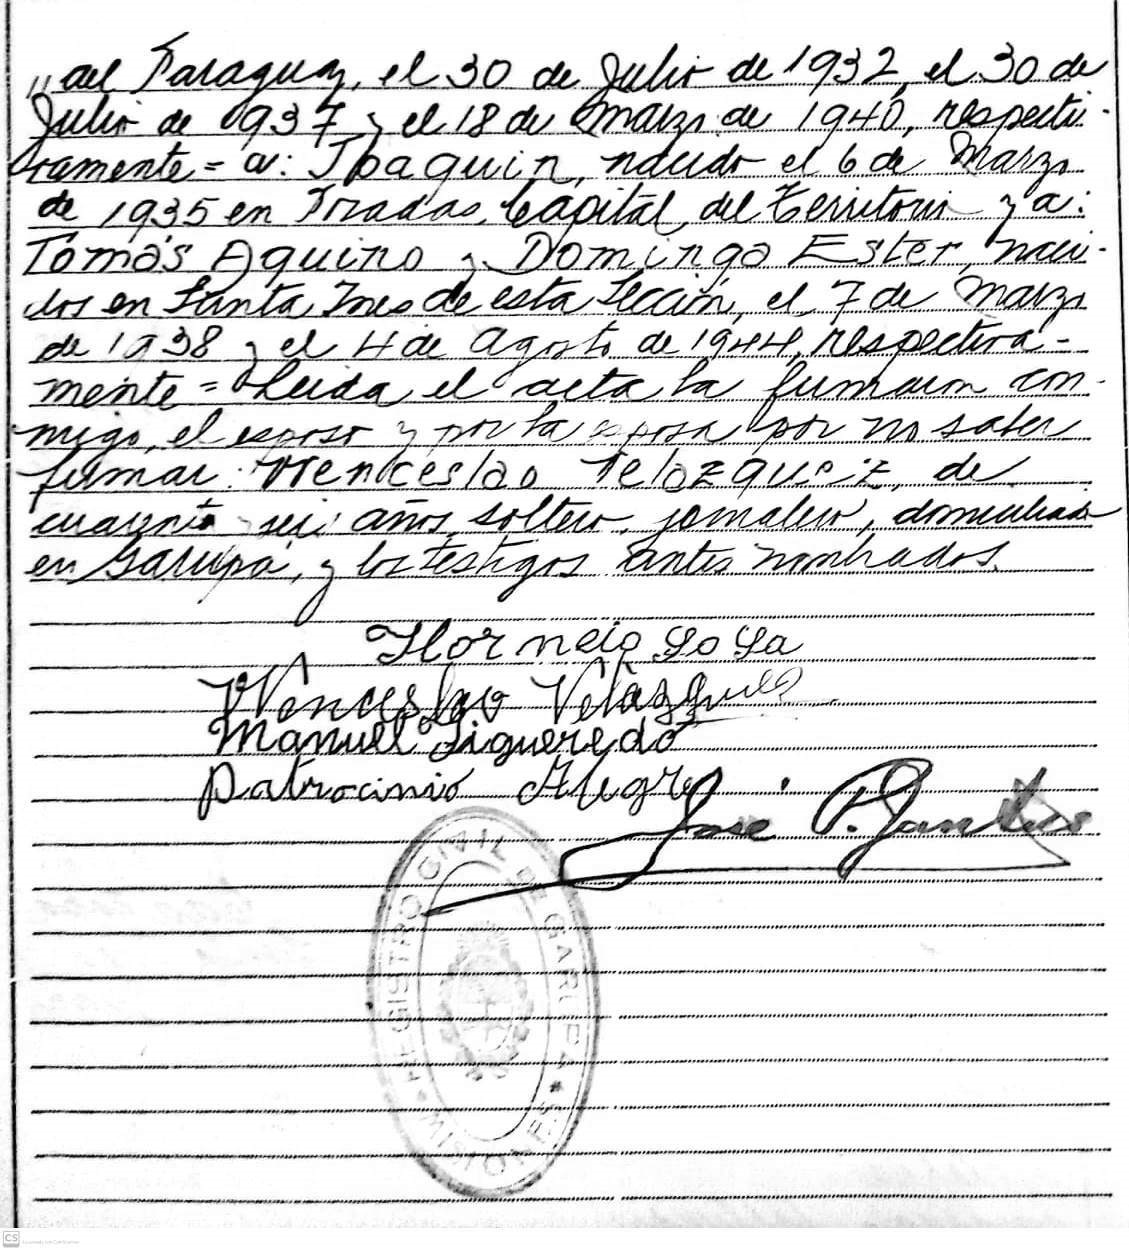 „ del Paraguay, el 30 de Julio de 1932, el 30 de
Julio de 1937 y el 18 de Marzo de 1940, respecti-
vamente = a: Joaquin, nacido el 6 de Marzo
de 1935 en Posadas, Capital del Territorio y a:
Tomás Aquino y Domingo Ester, naci-
dos en Santa Ines de esta Sección, el 7 de Marzo
de 1938 y el 4 de Agosto de 1944, respectiva-
mente = Leida el acta la firmaron con-
migo, el esposo y por la esposa por no saber
firmar: Wenceslao Velozquez, de
cuarenta y seis años, soltero, jornalero, domiciliado
en Garupá, y los testigos antes nombrados.
Wenceslao Velazquez
Manuel Figueredo
Patrocinio Alegre
José P.
REGISTRO CIVIL DE GARUPA
MISIONES
CS